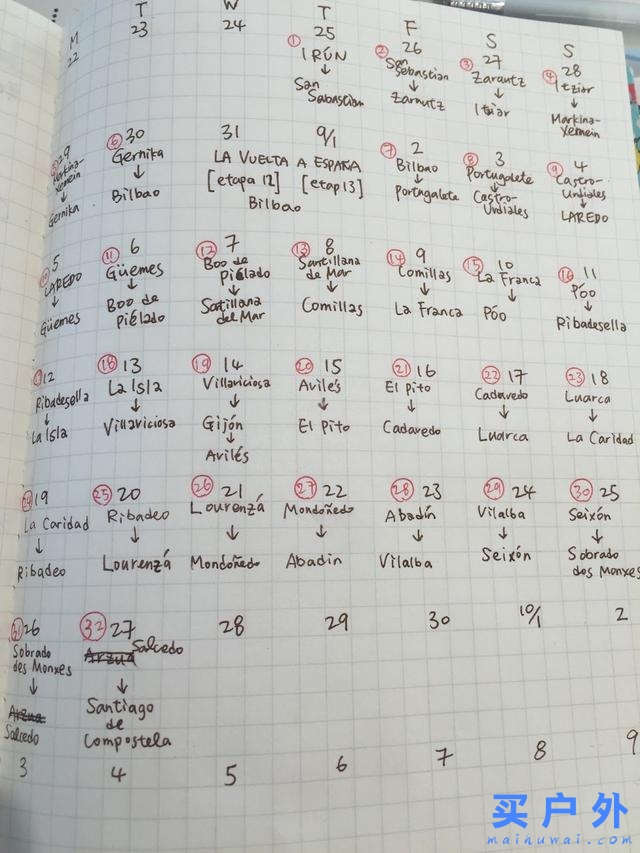 M T W T F S S
22 23 24 25 26 27 28
① IRÚN ↓ San Sabastian
② San Sebastian ↓ Zarautz
③ Zarautz ↓ Itziar
④ Itziar ↓ Markina-Xemein
29 Markina-Xemein ↓ Gernika
⑥ 30 Gernika ↓ Bilbao
31 9/1
LA VUELTA A ESPAÑA
[etapa 12] [etap 13]
Bilbao
⑦ 2 Bilbao ↓ Portugalete
⑧ 3 Portugalete ↓ Castro-Urdiales
⑨ 4 Castro-Urdiales ↓ LAREDO
⑩ 5 LAREDO ↓ Güemes
⑪ 6 Güemes ↓ Boo de Piélado
⑫ 7 Boo de Piélado ↓ Satillana del Mar
⑬ 8 Santillana de Mar ↓ Comillas
⑭ 9 Comillas ↓ La Franca
⑮ 10 La Franca ↓ Póo
⑯ 11 Póo ↓ Ribadesella
⑰ 12 Ribadesella ↓ La Isla
⑱ 13 La Isla ↓ Villaviciosa
⑲ 14 Villaviciosa ↓ Gijón ↓ Avilés
⑳ 15 Avilés ↓ El Pito
㉑ 16 El Pito ↓ Cadavedo
㉒ 17 Cadavedo ↓ Luarca
㉓ 18 Luarca ↓ La Caridad
㉔ 19 La Caridad ↓ Ribadeo
㉕ 20 Ribadeo ↓ Lourenzá
㉖ 21 Lourenzá ↓ Mondoñedo
㉗ 22 Mondoñedo ↓ Abadin
㉘ 23 Abadín ↓ Vilalba
㉙ 24 Vilalba ↓ Seixón
㉚ 25 Seixón ↓ Sobrado dos Monxes
㉛ 26 Sobrado des Monxes ↓ Arzua Salcedo
㉜ 27 Arzua Salcedo ↓ Santiago de Compostela
28 29 30 10/1 2
3 4 5 6 7 8 9
买户外
mainuwai.com